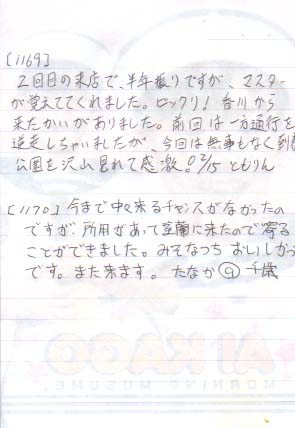 [1169]
2回目の来店で、半年振りですが、マスター
が覚えててくれました。ビックリ！香川から
来たかいがありました。前回は一方通行を
逆走しちゃいましたが、今回は無事もなく到
公園を沢山見れて感激。2/15 ともりん
[1170] 今まで中々来るチャンスがなかったの
ですが、所用があって室蘭に来たので寄る
ことができました。みそなつち おいしかっ
です。また来ます。たなか 千歳
AI KAGO
MORNING MUSUME.